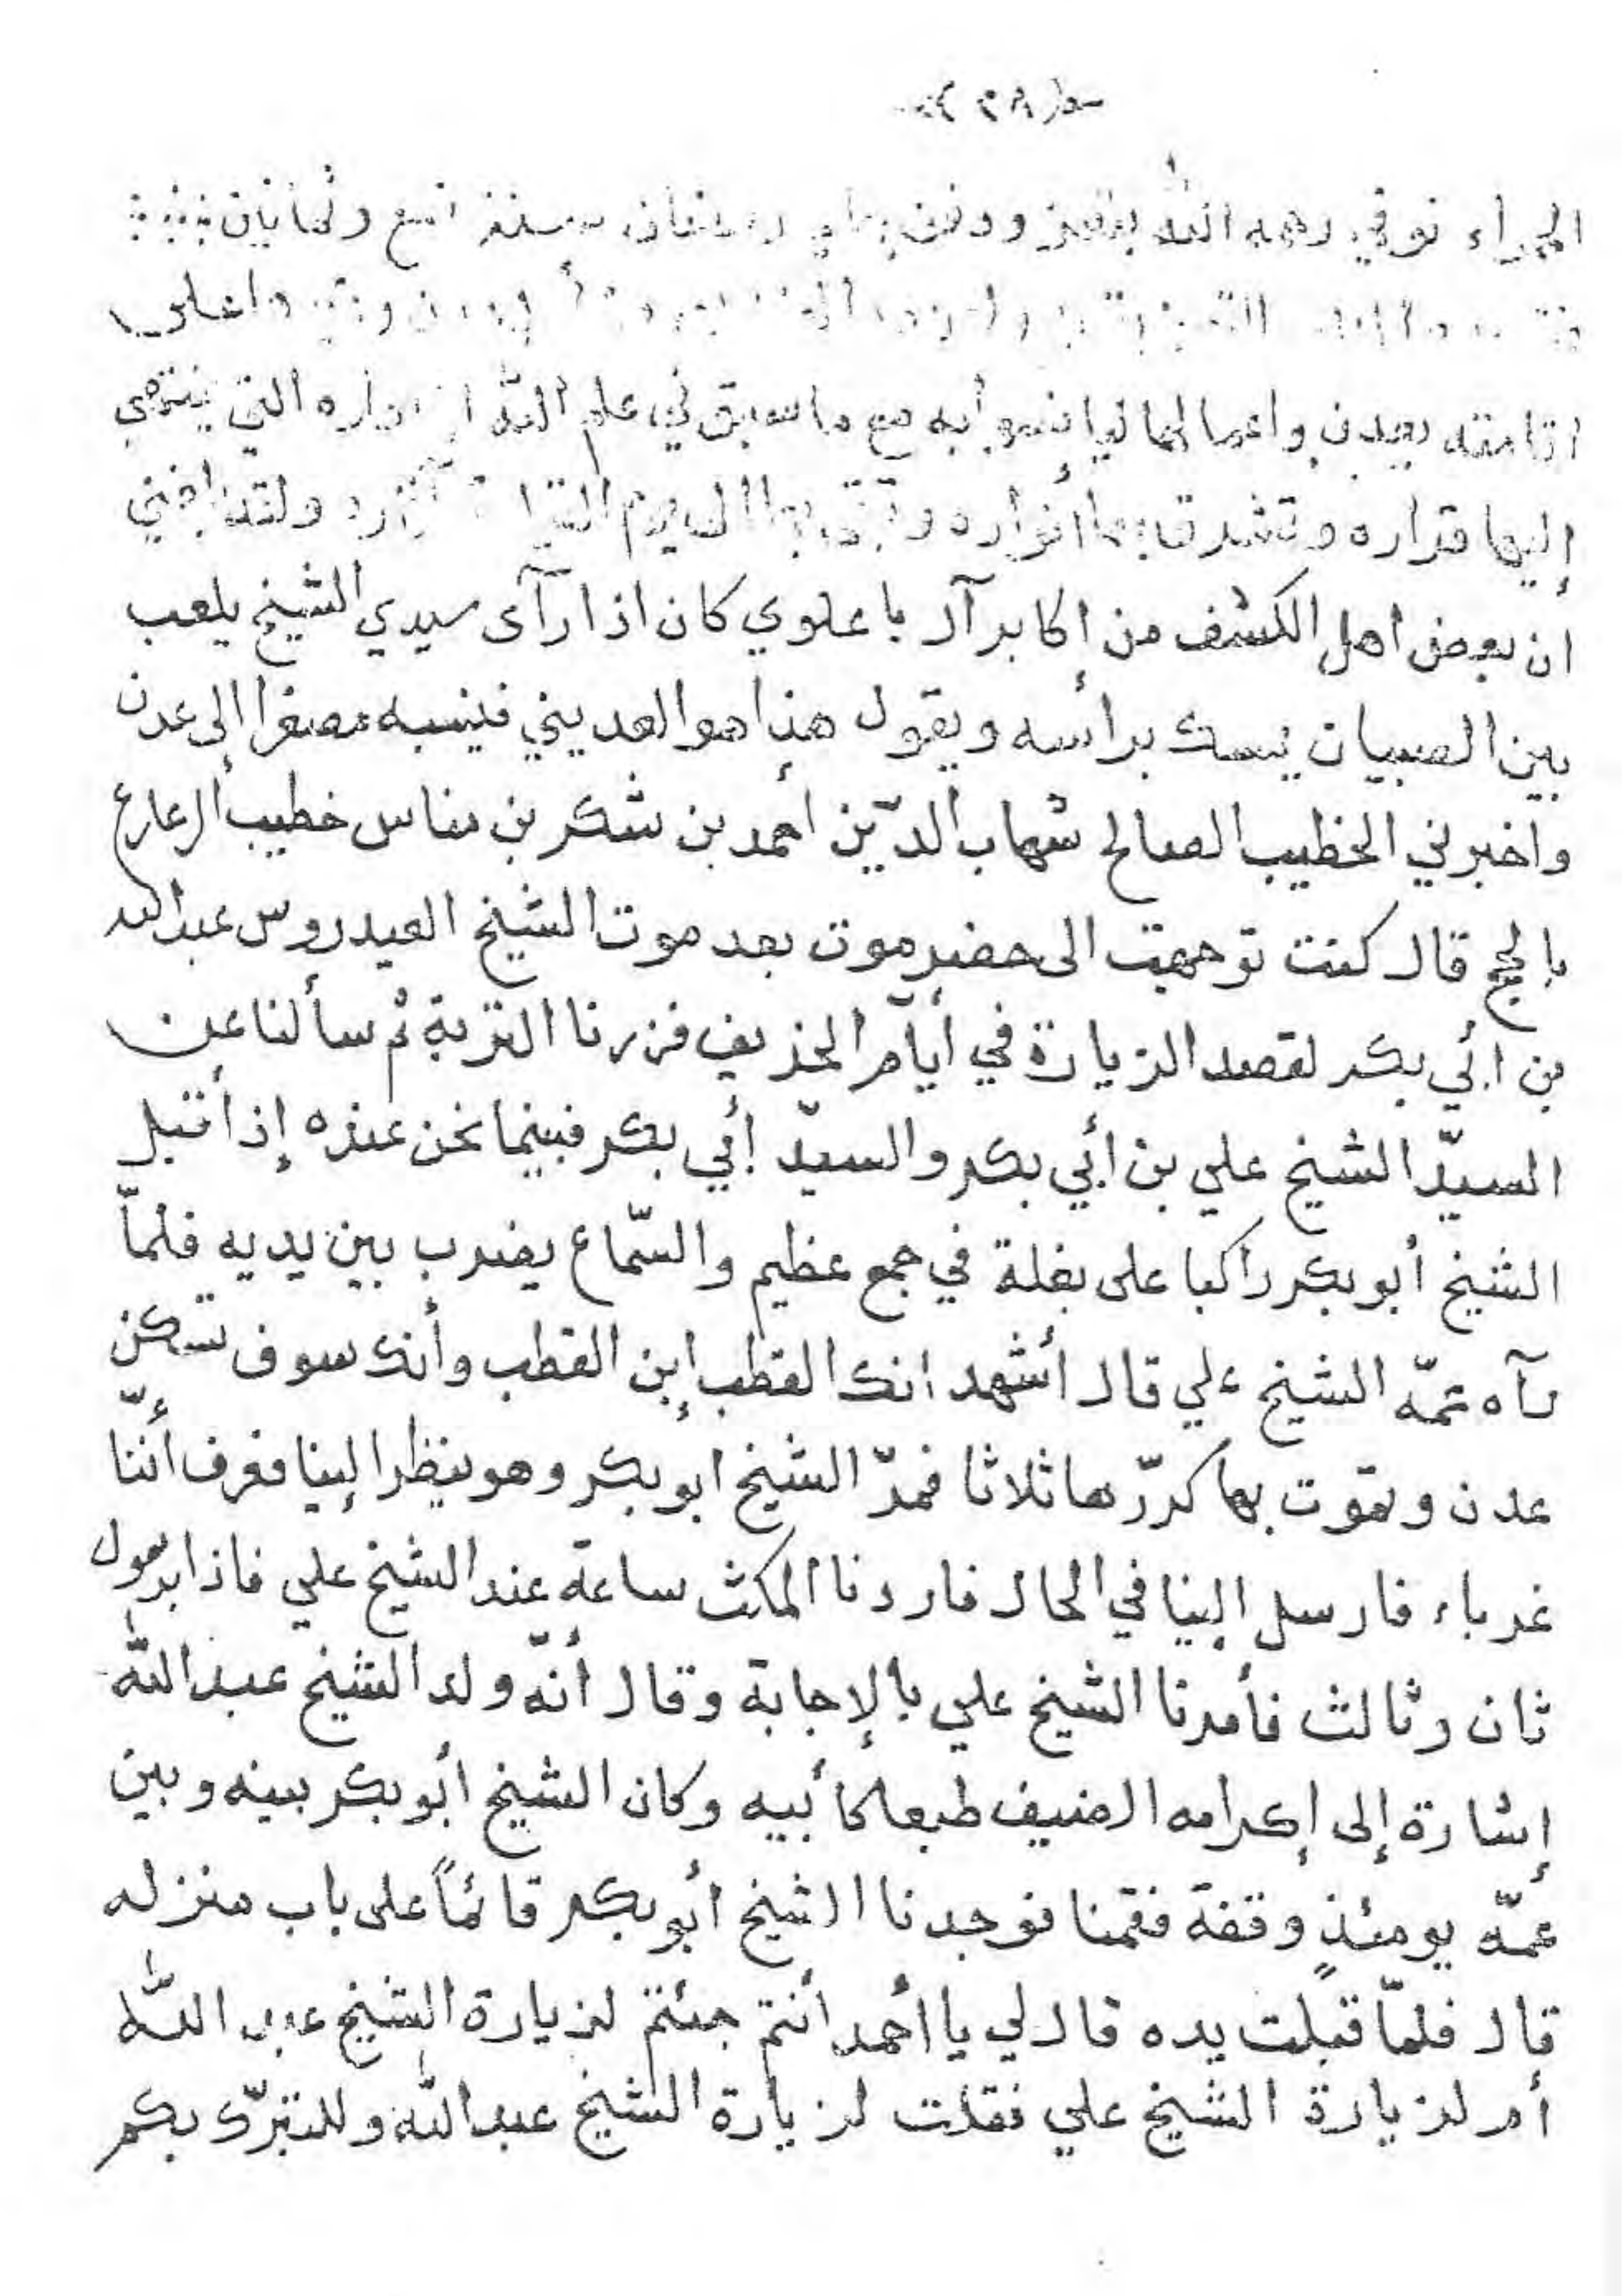 توفي رحمه الله بتعز ودفن بها رمضان سنة تسع وثمانين
اعلى
اقامته بعدن واعمالها مع ما سبق في علم الله التي ينتهي
إليها قراره وتشرق بها أنواره
ان بعض اهل الكشف من اكابر آل باعلوي كان اذا رآى سيدي الشيخ يلعب
بين الصبيان يمسك برأسه ويقول هذا هو العديني فينسبه مصغرا إلى عدن
واخبرني الخطيب الصالح شهاب الدّين أحمد بن شكر بن مناس خطيب الرعارع
بالحج قال كنت توجهت الى حضرموت بعد موت الشيخ العيدروس عبد الله
بن أبي بكر لقصد الزيارة في أيآم الخريف فزرنا التربة ثم سألنا عن
السيّد الشيخ علي بن أبي بكر والسيّد أبي بكر فبينما نحن عنده إذ أقبل
الشيخ أبو بكر راكبا على بغلة في جمع عظيم والسّماع يضرب بين يديه فلمّا
رآه عمّه الشيخ علي قال أشهد انك القطب إبن القطب وأنك سوف تسكن
عدن وتموت بها كرّرها ثلاثا فمرّ الشيخ ابو بكر وهو ينظر إلينا فعرف أنّنا
غرباء فارسل إلينا في الحال فاردنا المكث ساعة عند الشيخ علي فاذا برسول
ثان وثالث فأمرنا الشيخ علي بالإجابة وقال أنّه ولد الشيخ عبد الله
إشارة إلى إكرامه الضيف طبعا كأبيه وكان الشيخ أبو بكر بينه وبين
عمّه يومئذٍ وقفة فقمنا فوجدنا الشيخ أبو بكر قائماً على باب منزله
قال فلمّا قبّلت يده قال لي يا أحمد أنتم جئتم لزيارة الشيخ عبد الله
أم لزيارة الشيخ علي فقلت لزيارة الشيخ عبد الله وللتبرّك بكم